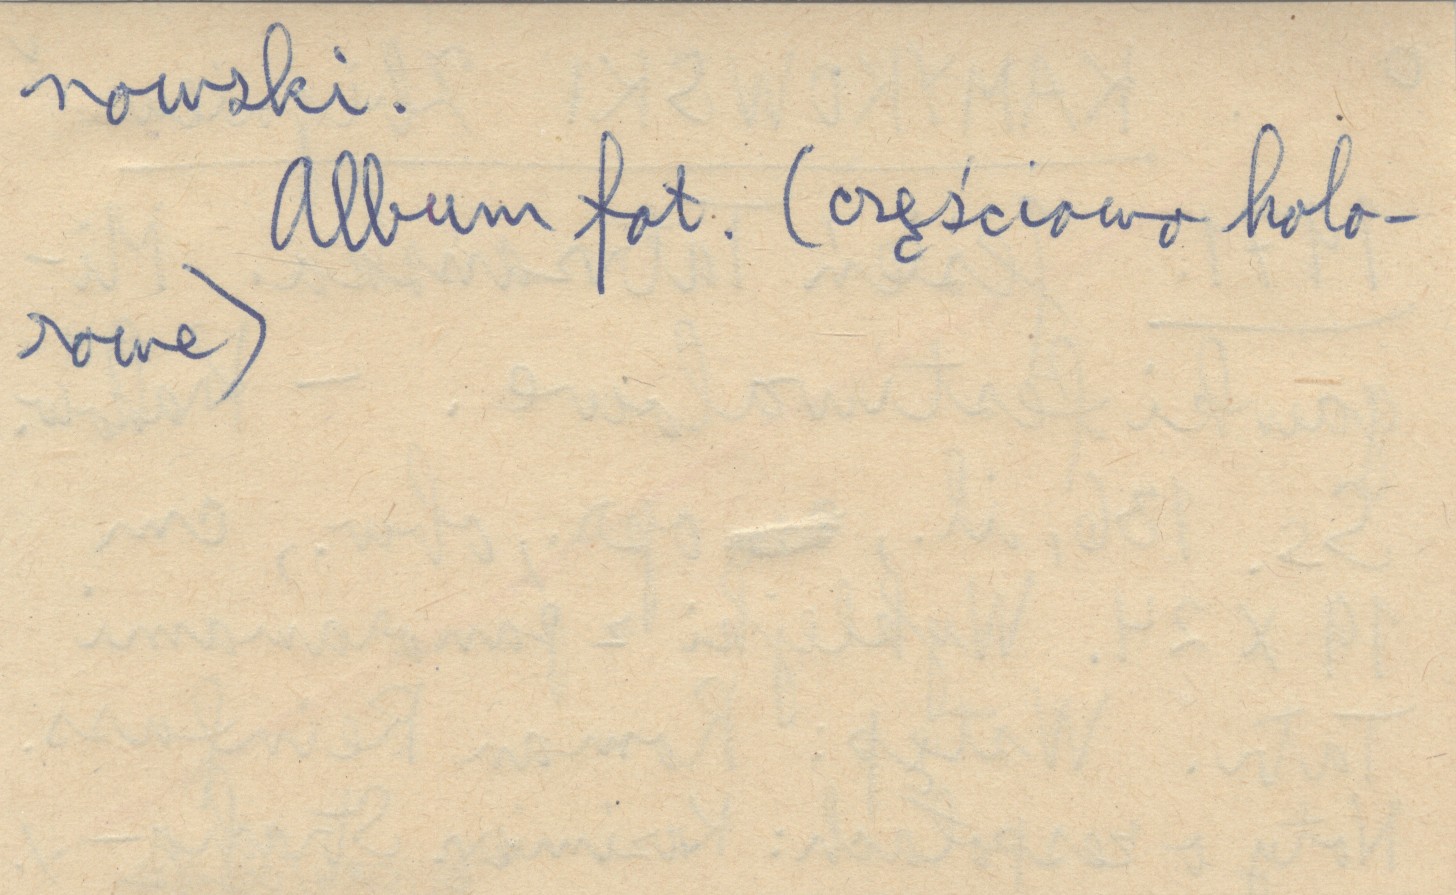 nowski.
Album fot. (częściowo kolo-
rowe)